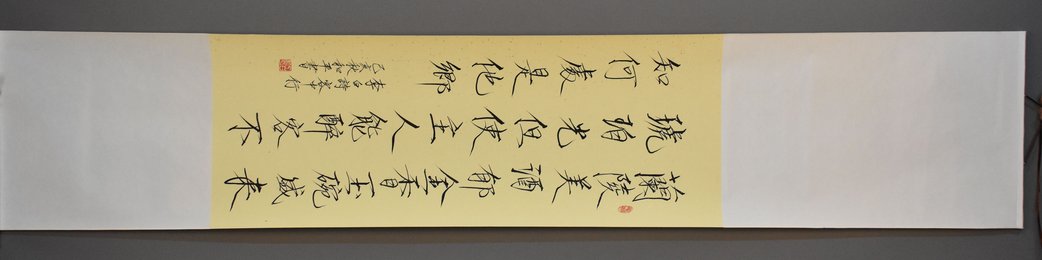 蘭陵美酒郁金香玉碗盛来
琥珀光但使主人能醉客不
知何處是他鄉
李白詩客中行
己亥秋和平書